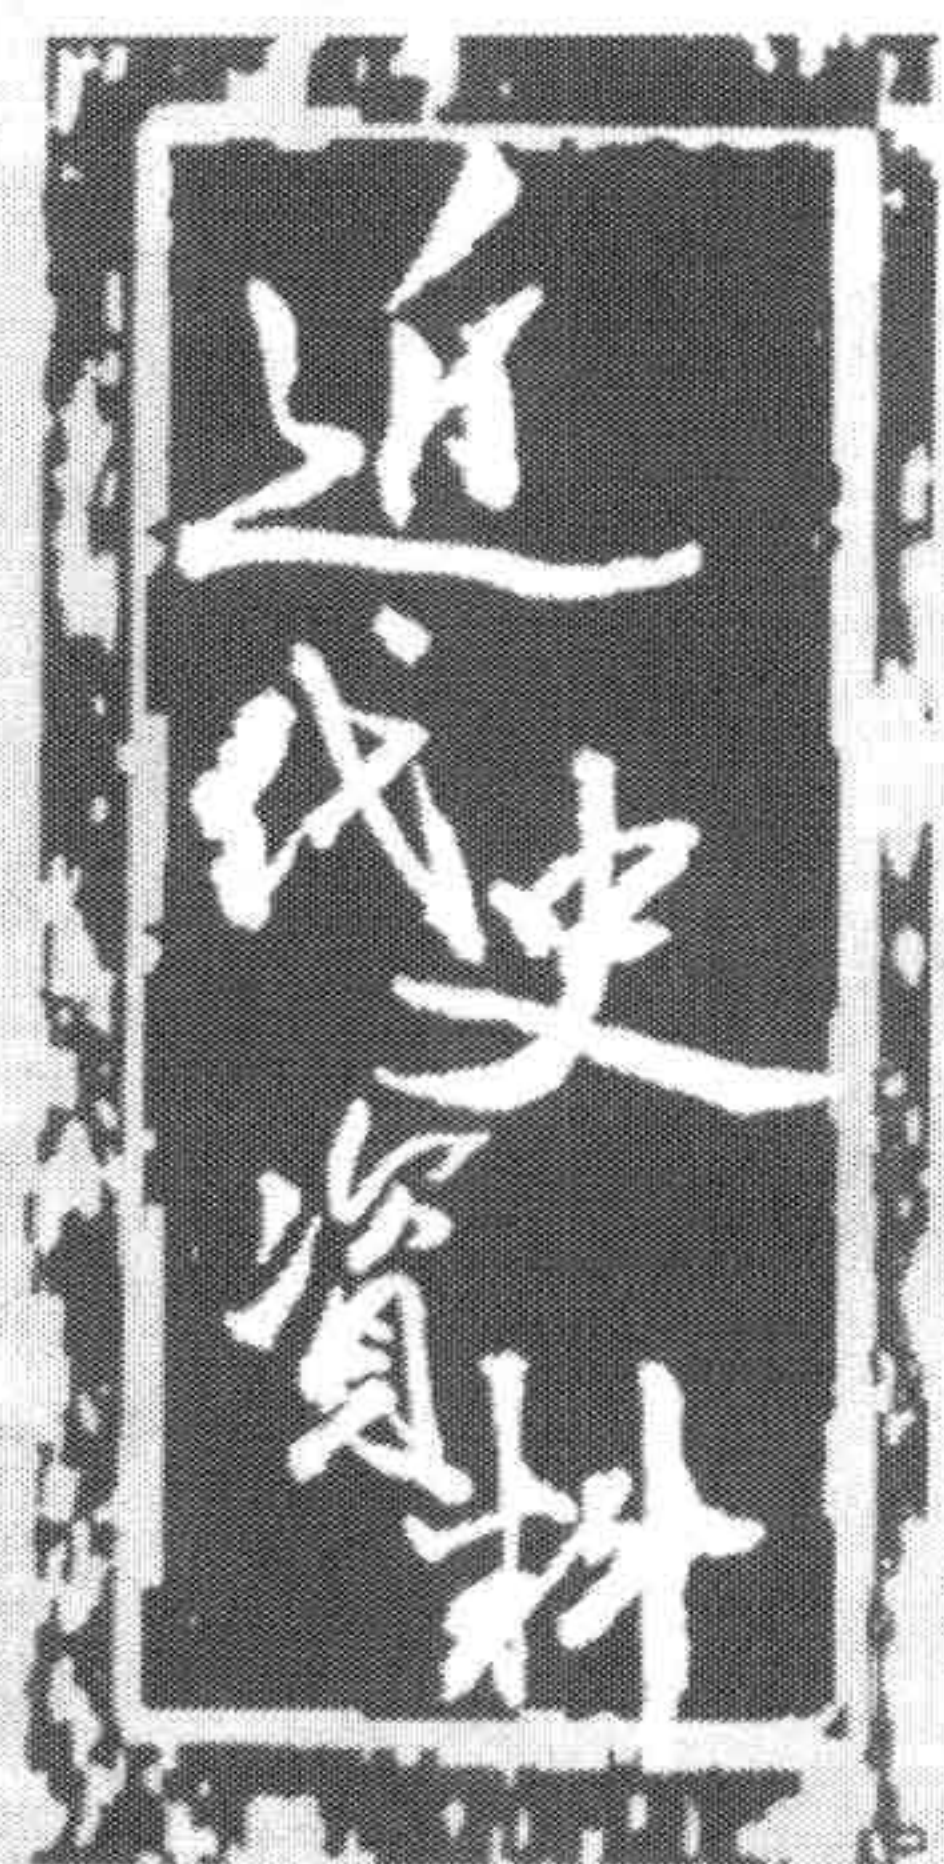 近代史資料